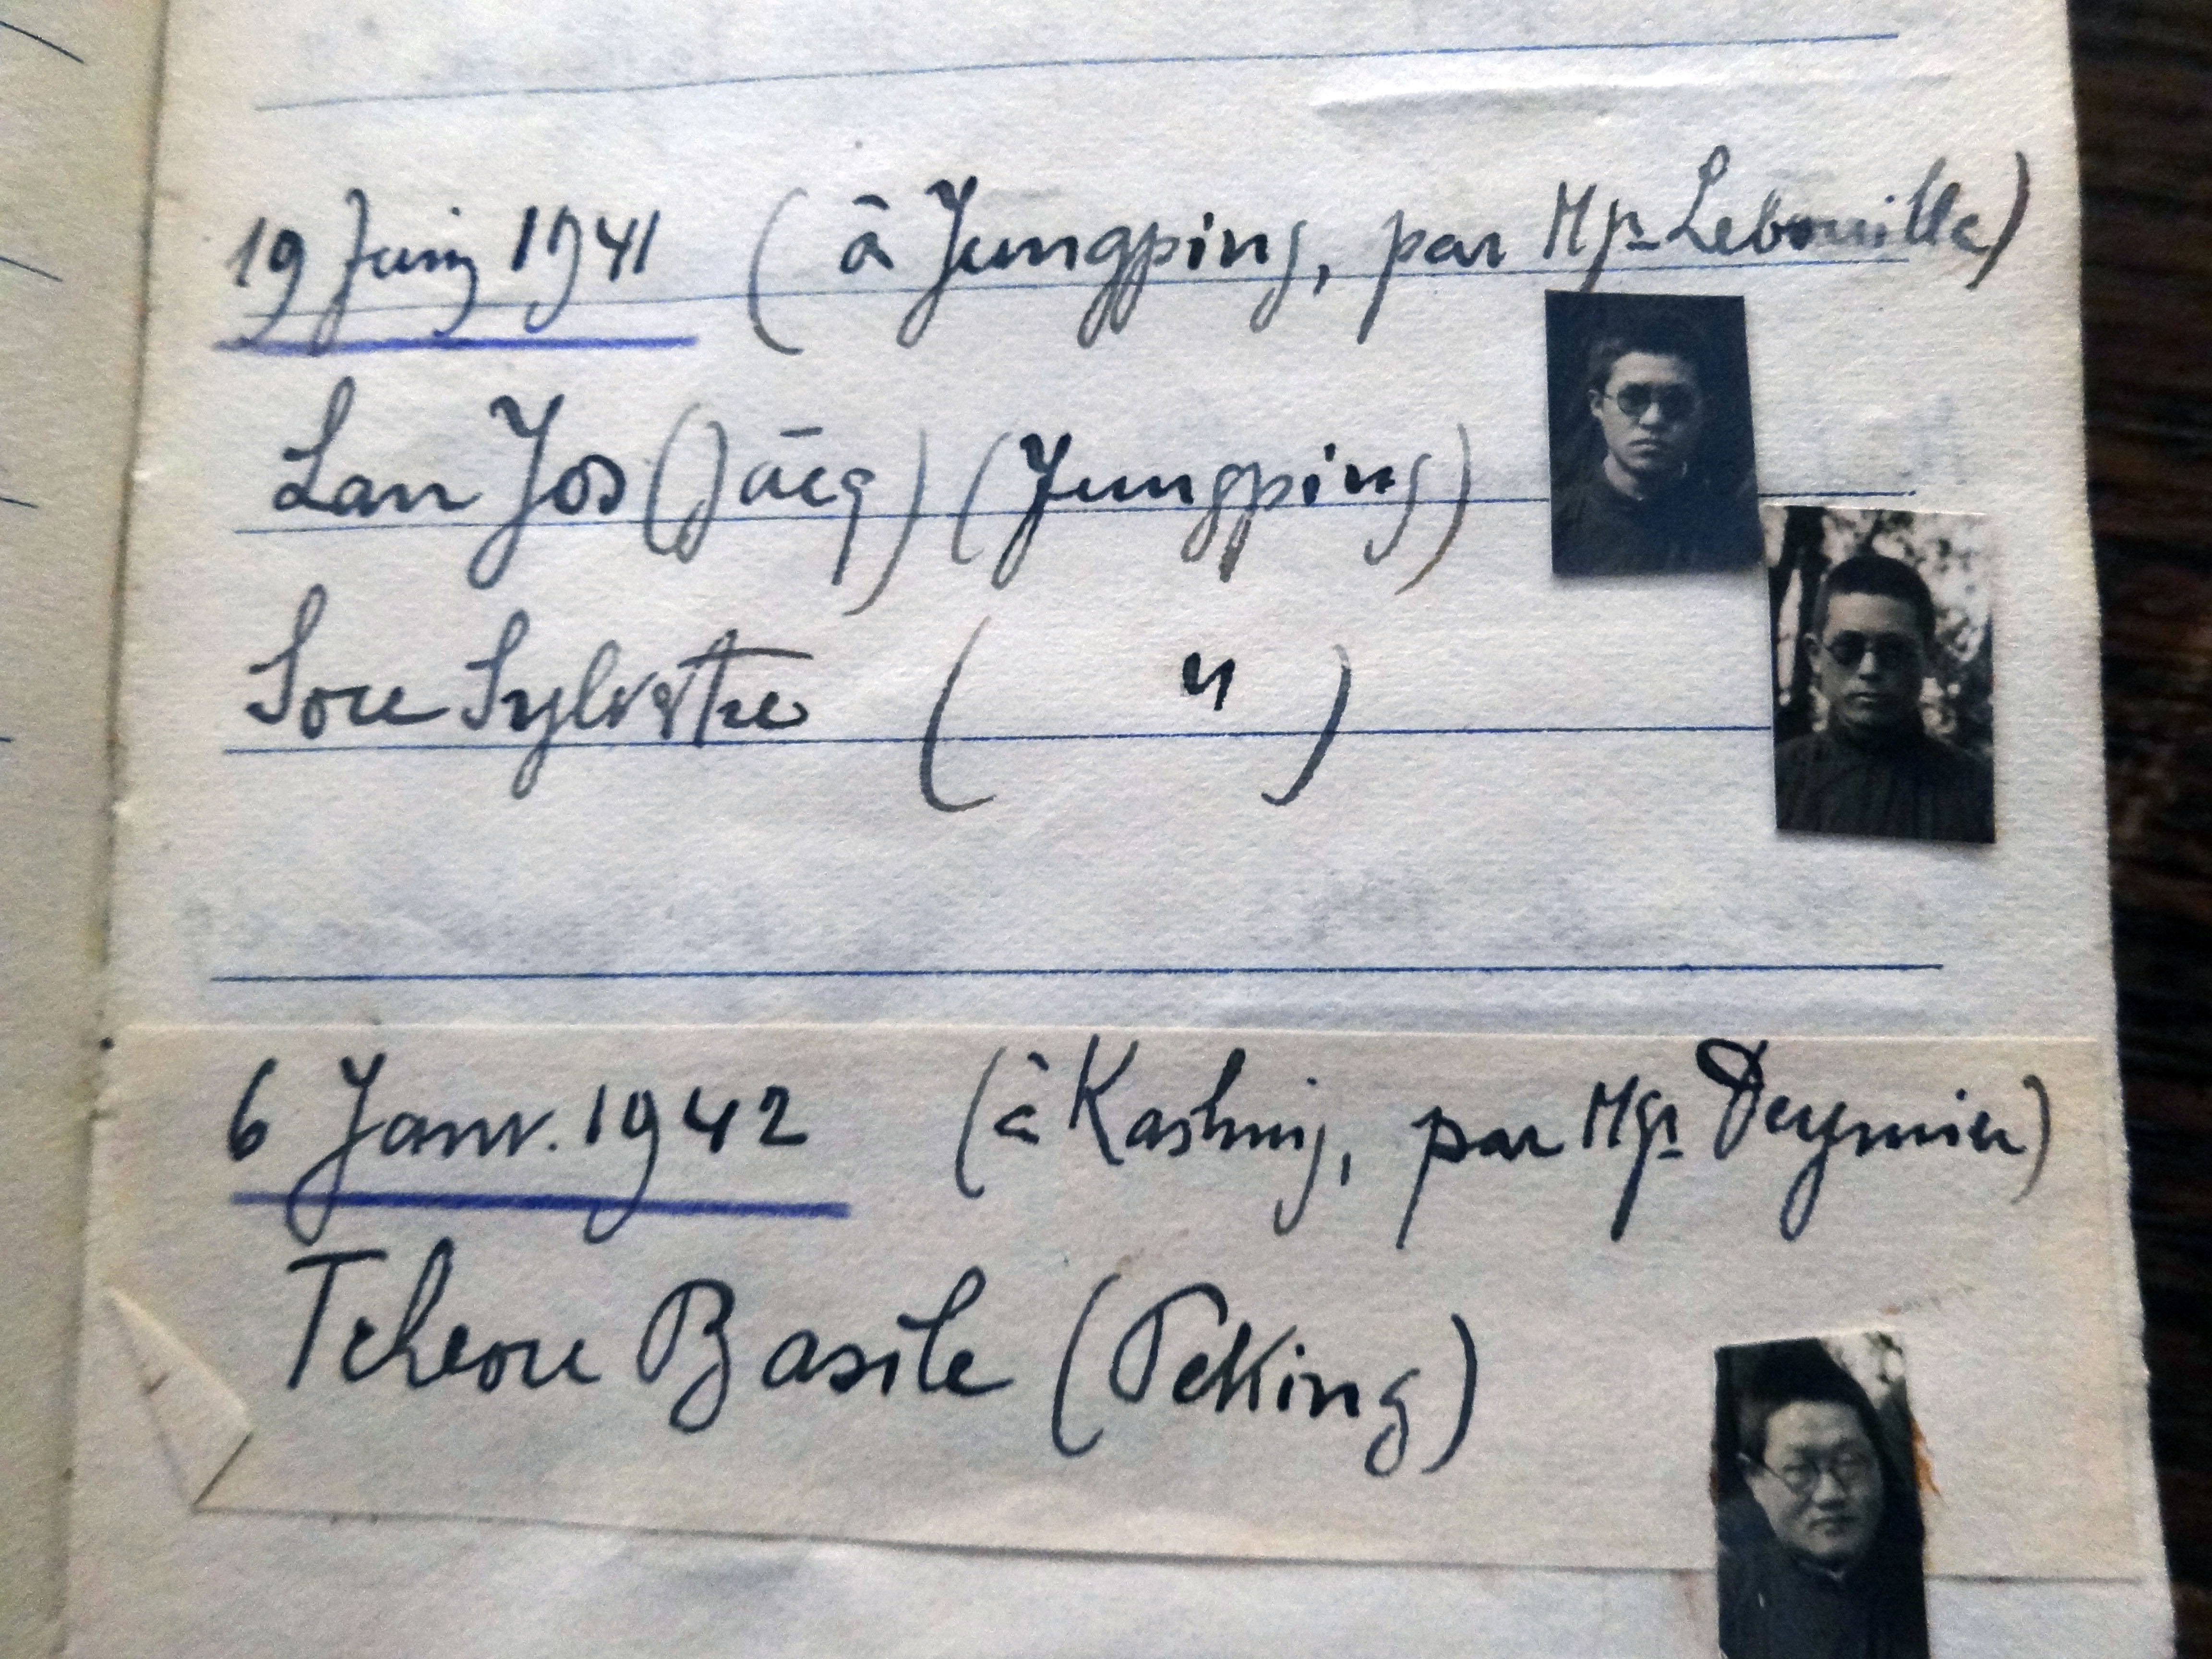 19 Juin 1941 (à Yungping, par Mgr Lebouille)
Lan Jos (Jacq) (Yungping)
Sou Sylvestre ( " )
6 Janv. 1942 (à Kashing, par Mgr Deymier)
Tcheou Basile (Peking)